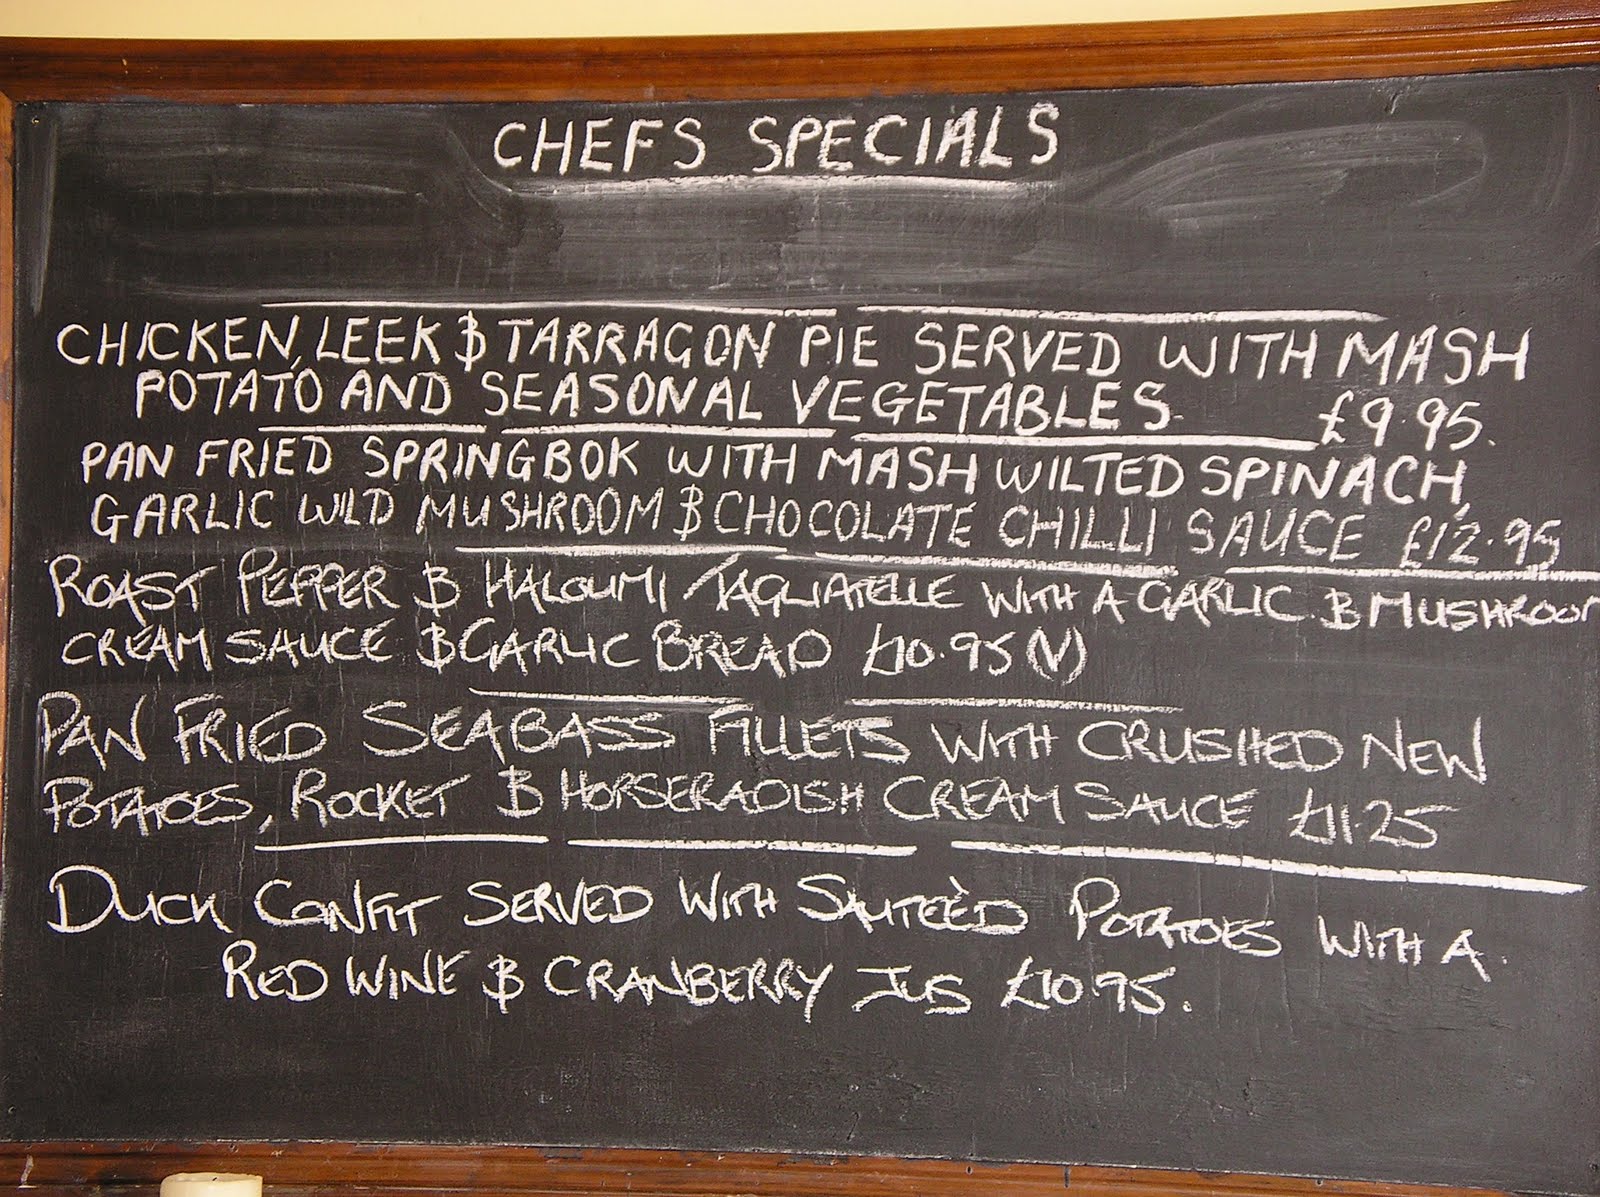 CHEFS SPECIALS
CHICKEN, LEEK & TARRAGON PIE SERVED WITH MASH
POTATO AND SEASONAL VEGETABLES £9.95.
PAN FRIED SPRINGBOK WITH MASH WILTED SPINACH,
GARLIC WILD MUSHROOM & CHOCOLATE CHILLI SAUCE £12.95
ROAST PEPPER & HALOUMI TAGLIATELLE WITH A GARLIC & MUSHROOM
CREAM SAUCE & GARLIC BREAD £10.95 (V)
PAN FRIED SEABASS FILLETS WITH CRUSHED NEW
POTATOES, ROCKET & HORSERADISH CREAM SAUCE £11.25
DUCK CONFIT SERVED WITH SAUTEÈD POTATOES WITH A.
RED WINE & CRANBERRY JUS £10.95.